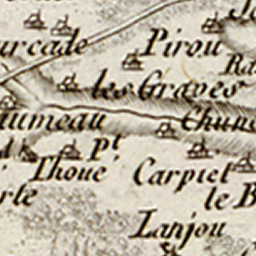 urcade
Pirou
les Graves
umeau
Chun
Pt Thoue
Carpiet
rle
le B
Lanjou